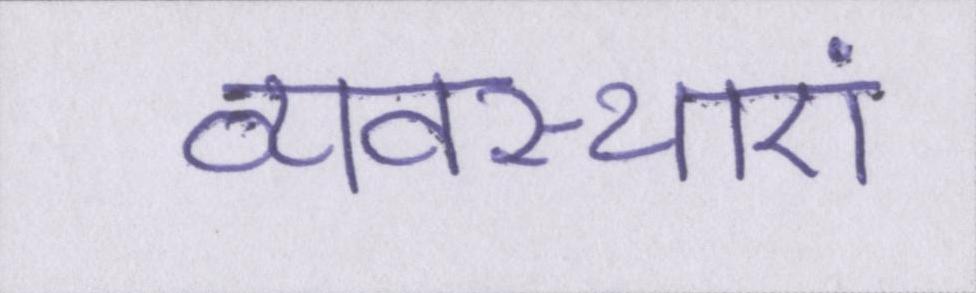 व्यवस्थाएं